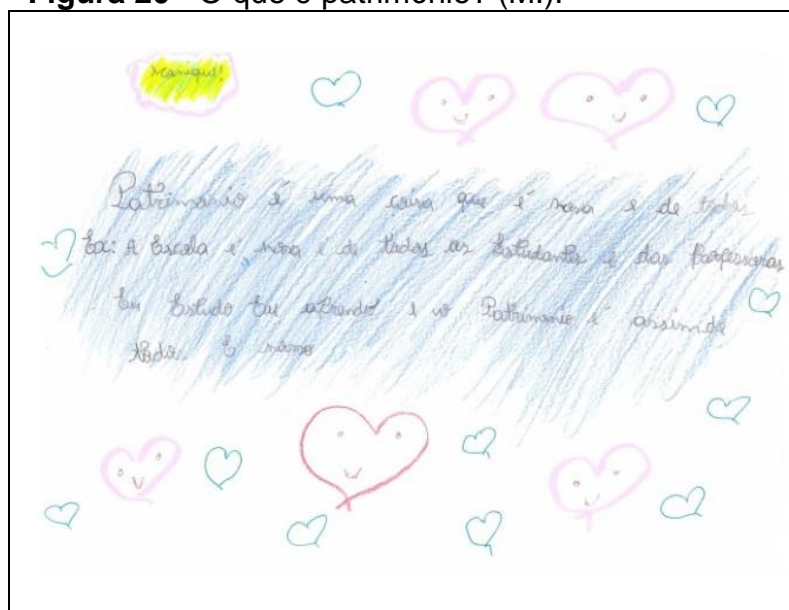 Figura 20 - O que é patrimônio? (M.).
Patrimonio é uma coisa que é nosa e de todos
Ex: A Escola é nosa é de todos os Estudantes e das Professoras
Eu Estudo Eu aprendo e o Patrimonio é assim de
todo. E